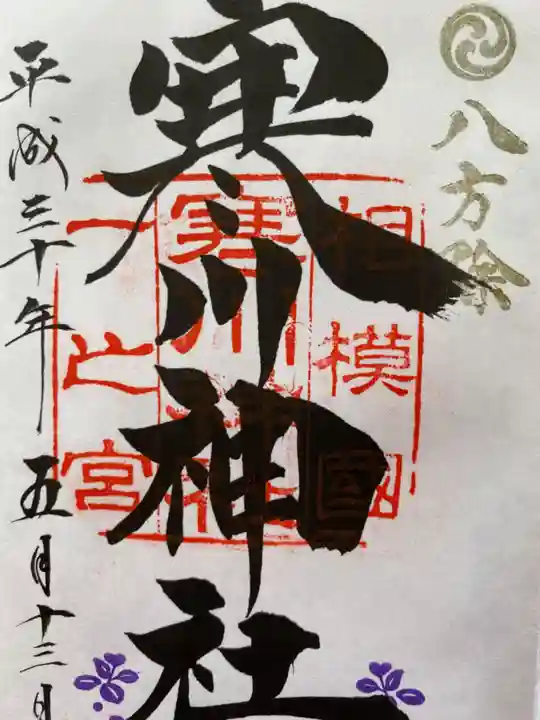 八方除
相模國
寒川神社
一之宮
寒川神社
平成三十年五月十三日